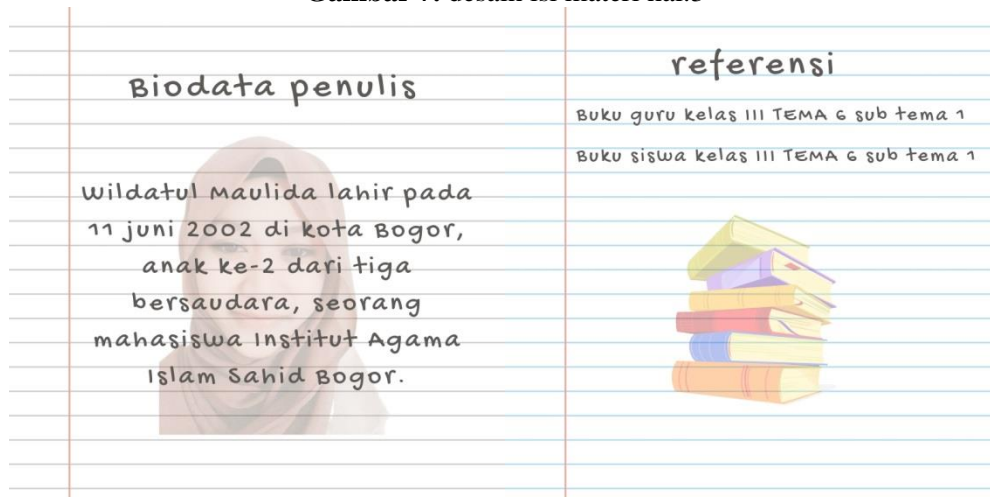 Biodata penulis
Wildatul Maulida lahir pada
11 juni 2002 di kota Bogor,
anak ke-2 dari tiga
bersaudara, seorang
mahasiswa Institut Agama
Islam Sahid Bogor.
referensi
Buku guru kelas III TEMA 6 sub tema 1
Buku siswa kelas III TEMA 6 sub tema 1